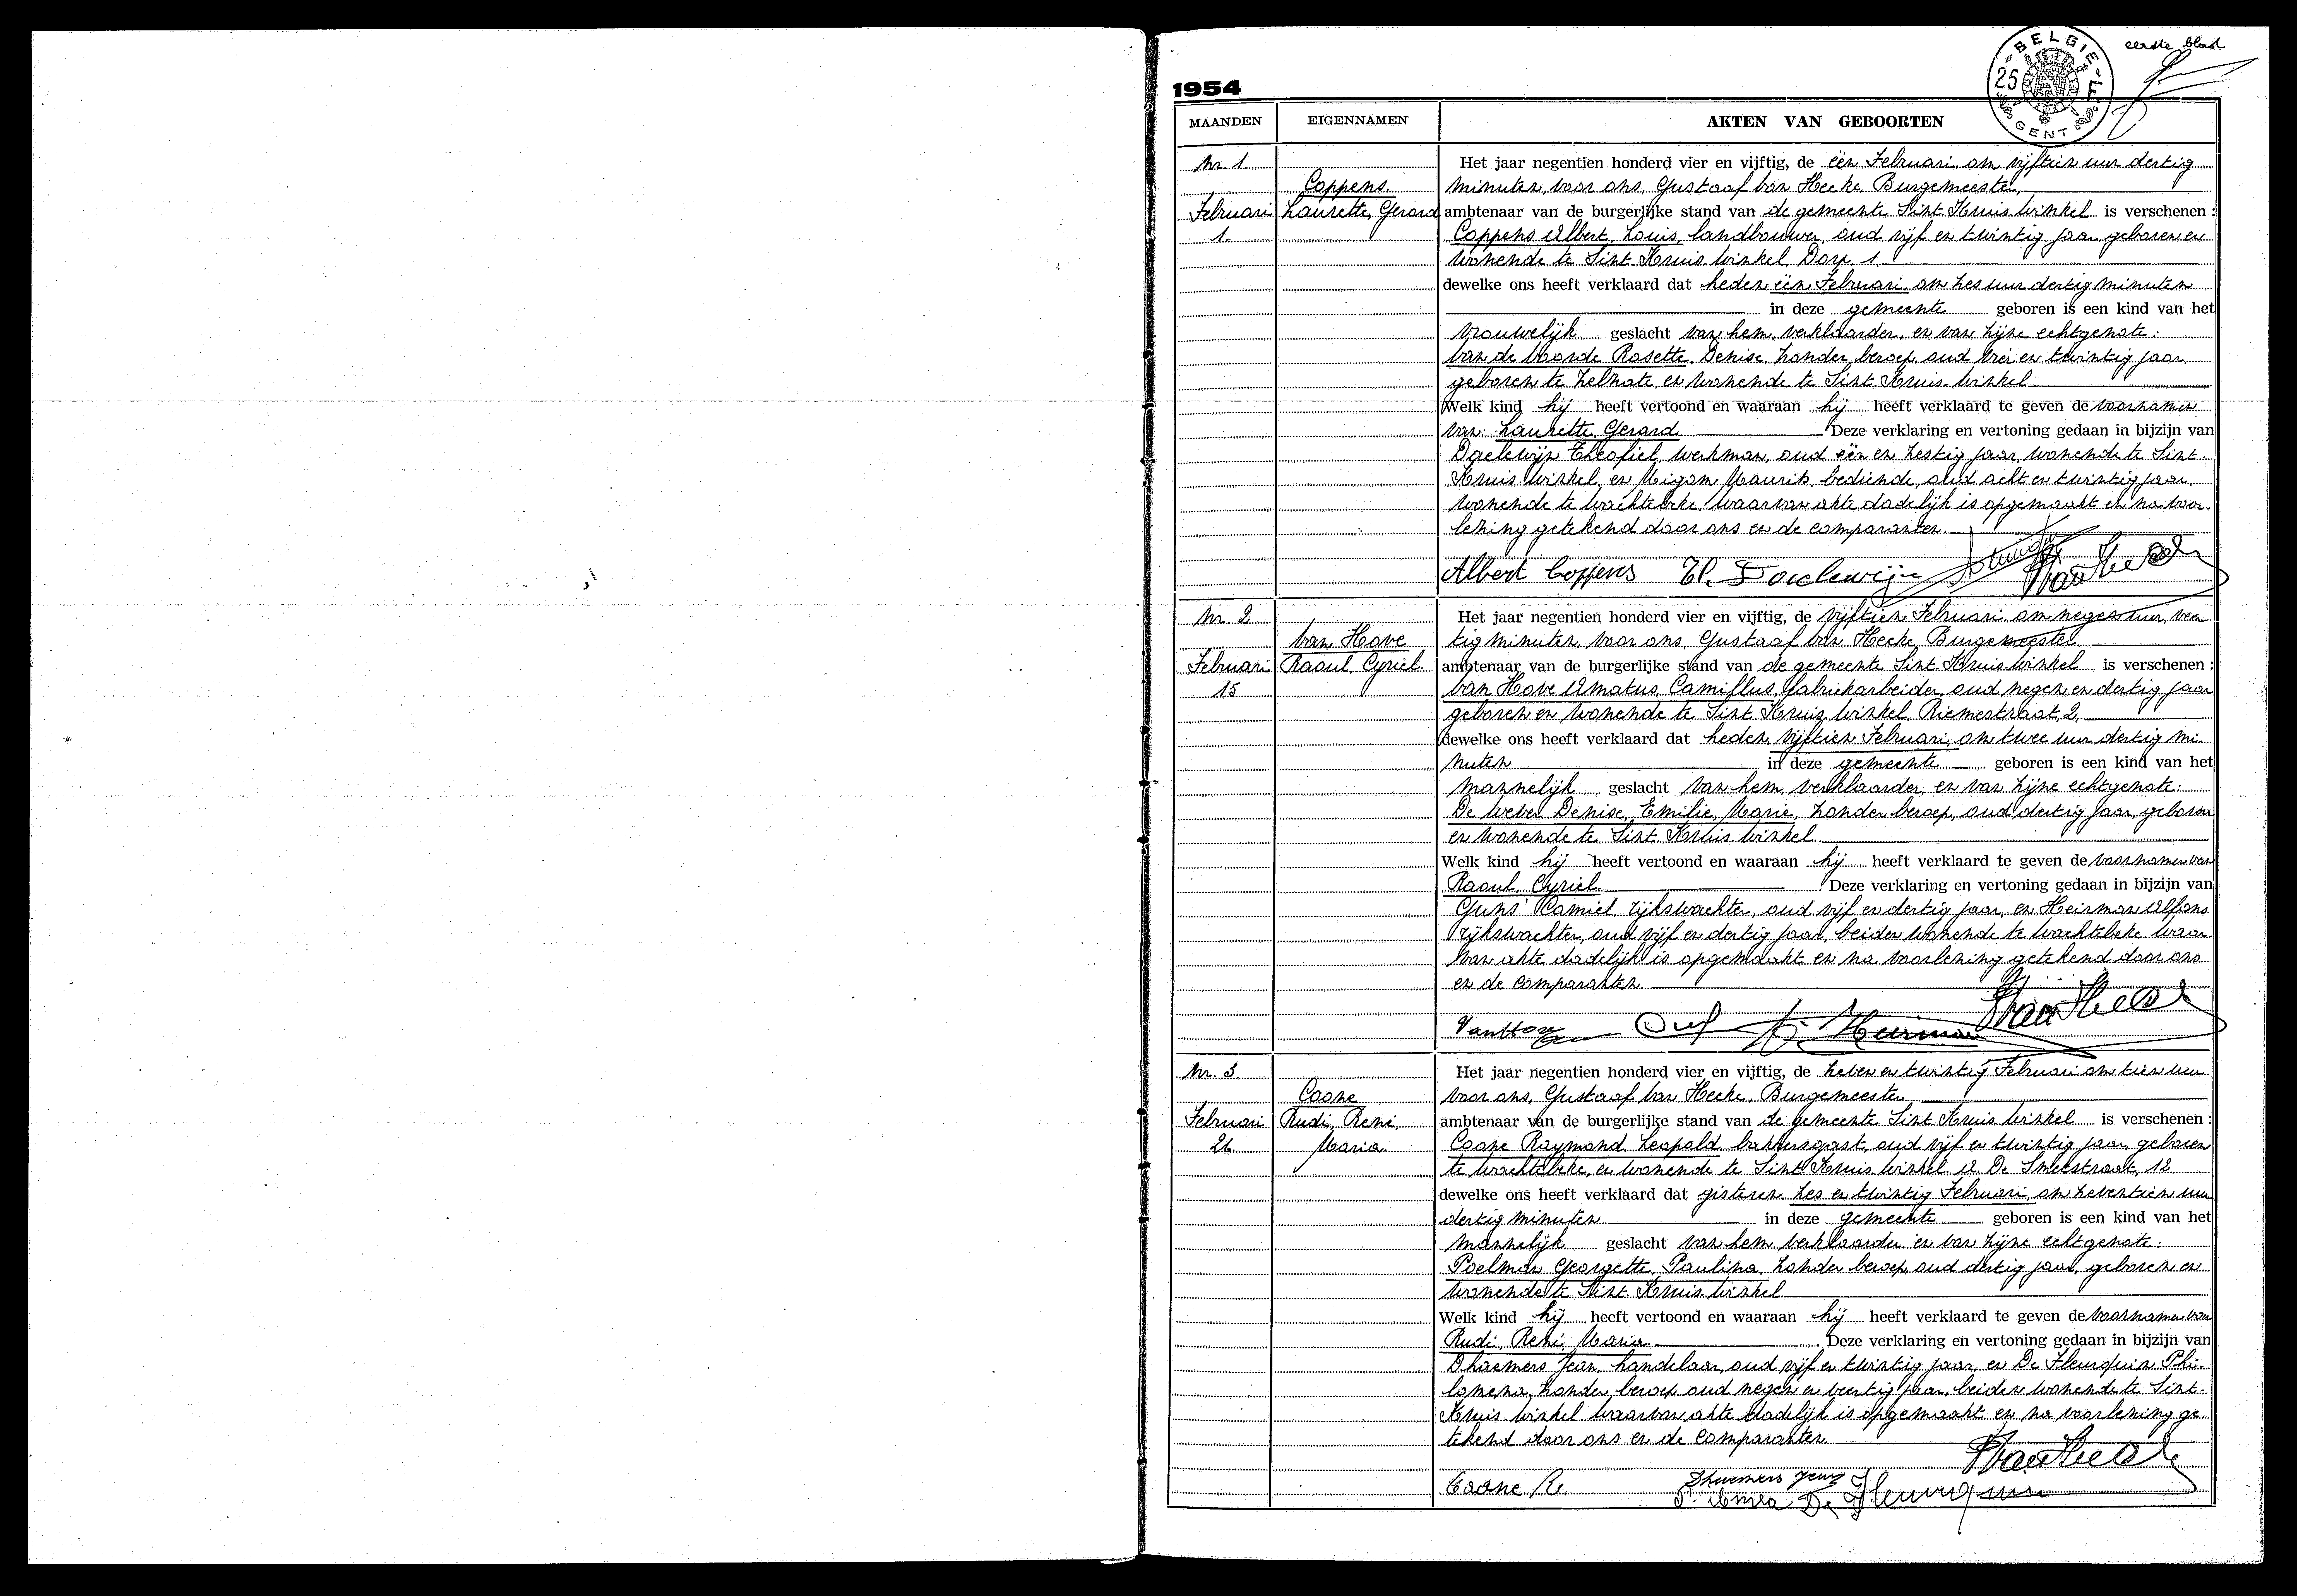 eerste blad
BELGIE
25 F
GENT
1954
MAANDEN EIGENNAMEN AKTEN VAN GEBOORTEN
Nr. 1 Het jaar negentien honderd vier en vijftig, de één Februari om vijftien uur dertig
Coppens minuten, voor ons, Gustaaf Van Hecke, Burgemeester,
Februari Laurette, Gerard ambtenaar van de burgerlijke stand van de gemeente Sint Kruis Winkel is verschenen :
1. Coppens Albert, Louis, landbouwer, oud vijf en twintig jaar, geboren en
wonende te Sint Kruis Winkel, Dorp 1
dewelke ons heeft verklaard dat heden één Februari om zes uur dertig minuten
in deze gemeente geboren is een kind van het
vrouwelijk geslacht van hem, verklaarder, en van zijne echtgenote:
Van de Voorde Rosette, Denise, zonder beroep, oud vier en twintig jaar,
geboren te Zelzate en wonende te Sint Kruis Winkel
Welk kind hij heeft vertoond en waaraan hij heeft verklaard te geven de voornamen
van: Laurette, Gerard Deze verklaring en vertoning gedaan in bijzijn van
Daelewijn Theofiel, werkman, oud één en zestig jaar, wonende te Sint
Kruis Winkel, en Migom Maurits, bediende, oud acht en twintig jaar,
wonende te Wachtebeke, waarvan akte dadelijk is opgemaakt en na voor-
lezing getekend door ons en de comparanten.
Albert Coppens Th. Daelewijn VanHecke
Nr. 2 Het jaar negentien honderd vier en vijftig, de vijftien Februari om negen uur, veer
Van Hove tig minuten, voor ons, Gustaaf Van Hecke, Burgemeester
Februari Raoul, Cyriel ambtenaar van de burgerlijke stand van de gemeente Sint Kruis Winkel is verschenen :
15 Van Hove Amatus, Camillus, fabriekarbeider, oud negen en dertig jaar
geboren en wonende te Sint Kruis Winkel, Riemestraat, 2,
dewelke ons heeft verklaard dat heden, vijftien Februari, om twee uur dertig mi-
nuten in deze gemeente geboren is een kind van het
mannelijk geslacht van hem, verklaarder, en van zijne echtgenote:
De Wever Denise, Emilie, Marie, zonder beroep, oud dertig jaar, geboren
en wonende te Sint Kruis Winkel
Welk kind hij heeft vertoond en waaraan hij heeft verklaard te geven de voornamen van
Raoul, Cyriel. Deze verklaring en vertoning gedaan in bijzijn van
Camiel, rijkswachter, oud vijf en dertig jaar, en Heirman Alfons
rijkswachter, oud vijf en dertig jaar, beiden wonende te Wachtebeke waar
van akte dadelijk is opgemaakt en na voorlezing getekend door ons
en de comparanten.
VanHove Heirman VanHecke
Nr. 3. Het jaar negentien honderd vier en vijftig, de zeven en twintig Februari om tien uur
Coone voor ons, Gustaaf Van Hecke, Burgemeester
Februari Rudi, René, ambtenaar van de burgerlijke stand van de gemeente Sint Kruis Winkel is verschenen :
26. Maria Coone Raymond, Leopold, bakkersgast, oud vijf en twintig jaar, geboren
te Wachtebeke, en wonende te Sint Kruis Winkel A. De Smetstraat, 12
dewelke ons heeft verklaard dat gisteren zes en twintig Februari, om zeventien uur
dertig minuten in deze gemeente geboren is een kind van het
mannelijk geslacht van hem verklaarder en van zijne echtgenote:
Poelman Georgette, Paulina, zonder beroep, oud dertig jaar, geboren en
wonende te Sint Kruis Winkel
Welk kind hij heeft vertoond en waaraan hij heeft verklaard te geven de voornamen van
Rudi, René, Maria. Deze verklaring en vertoning gedaan in bijzijn van
Dhaemers Jean, handelaar, oud vijf en twintig jaar, en De Fleurquin Phi-
lomena, zonder beroep oud negen en veertig jaar, beiden wonende te Sint-
Kruis Winkel waarvan akte dadelijk is opgemaakt en na voorlezing ge-
tekend door ons en de comparanten.
VanHecke
Coone R. Dhaemers Jean
De Fleurquin